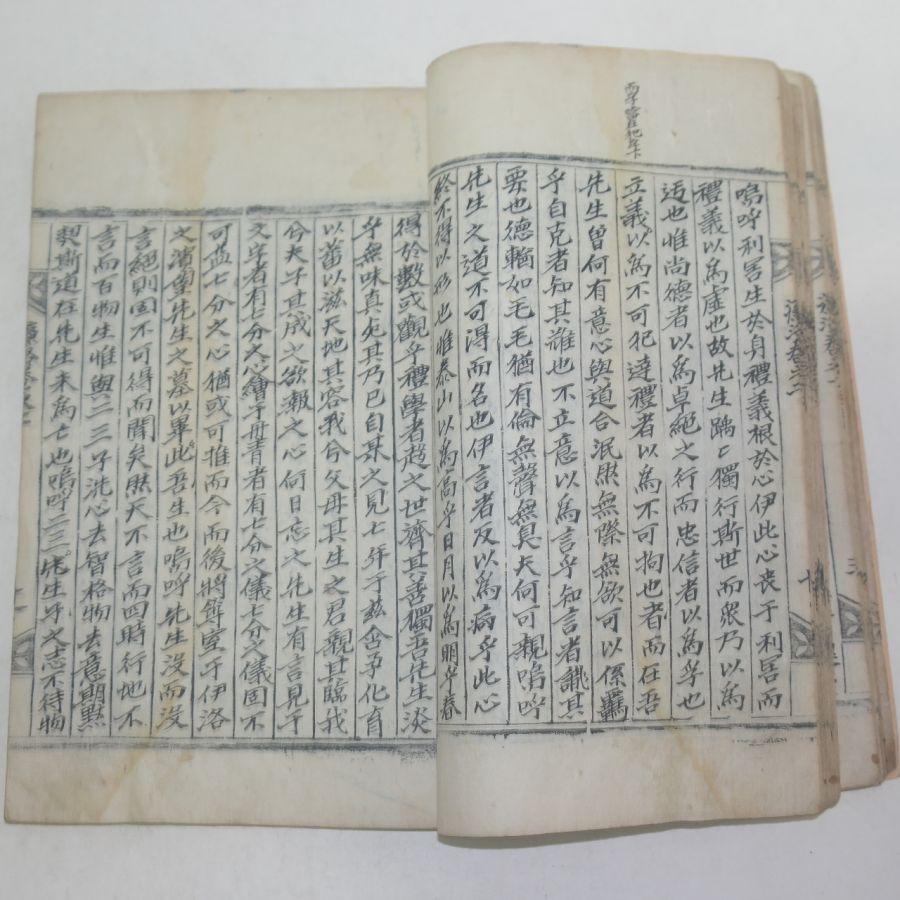 嗚呼利害生於身禮義根於心伊此心喪于利害而
禮義以爲虛也故先生踽〻獨行斯世而衆乃以爲
迃也惟尚德者以爲卓絕之行而忠信者以爲孚也
立義以爲不可犯達禮者以爲不可拘也者而在吾
先生曾何有意心與道合泯然無際無欲可以係羈
乎自克者知其難也不立意以爲言乎知言者識其
要也德輶如毛毛猶有倫無聲無臭夫何可親嗚呼
先生之道不可得而名也伊言者反以爲病乎此心
終不得以形也惟泰山以爲高乎日月以爲明乎春
得於數或觀乎禮學者趨之世濟其美獨吾先生淡
乎無味真宛其乃已自某之見七年于兹含孕化育
以蕃以滋天地其容我兮父母其生之君親其臨我
兮夫子其成之欲報之心何日忘之先生有言見于
文字者有七分之心繪于丹青者有七分之儀七分之儀固不
可益七分之心猶或可推而今而後將築室于伊洛
之濱望先生之墓以畢此吾生也嗚呼先生没而没
言絕則固不可得而聞矣然天不言而四時行地不
言而百物生惟與二三子洗心去智格物去意期默
契斯道在先生未爲亡也嗚呼二三先生子之志不待物